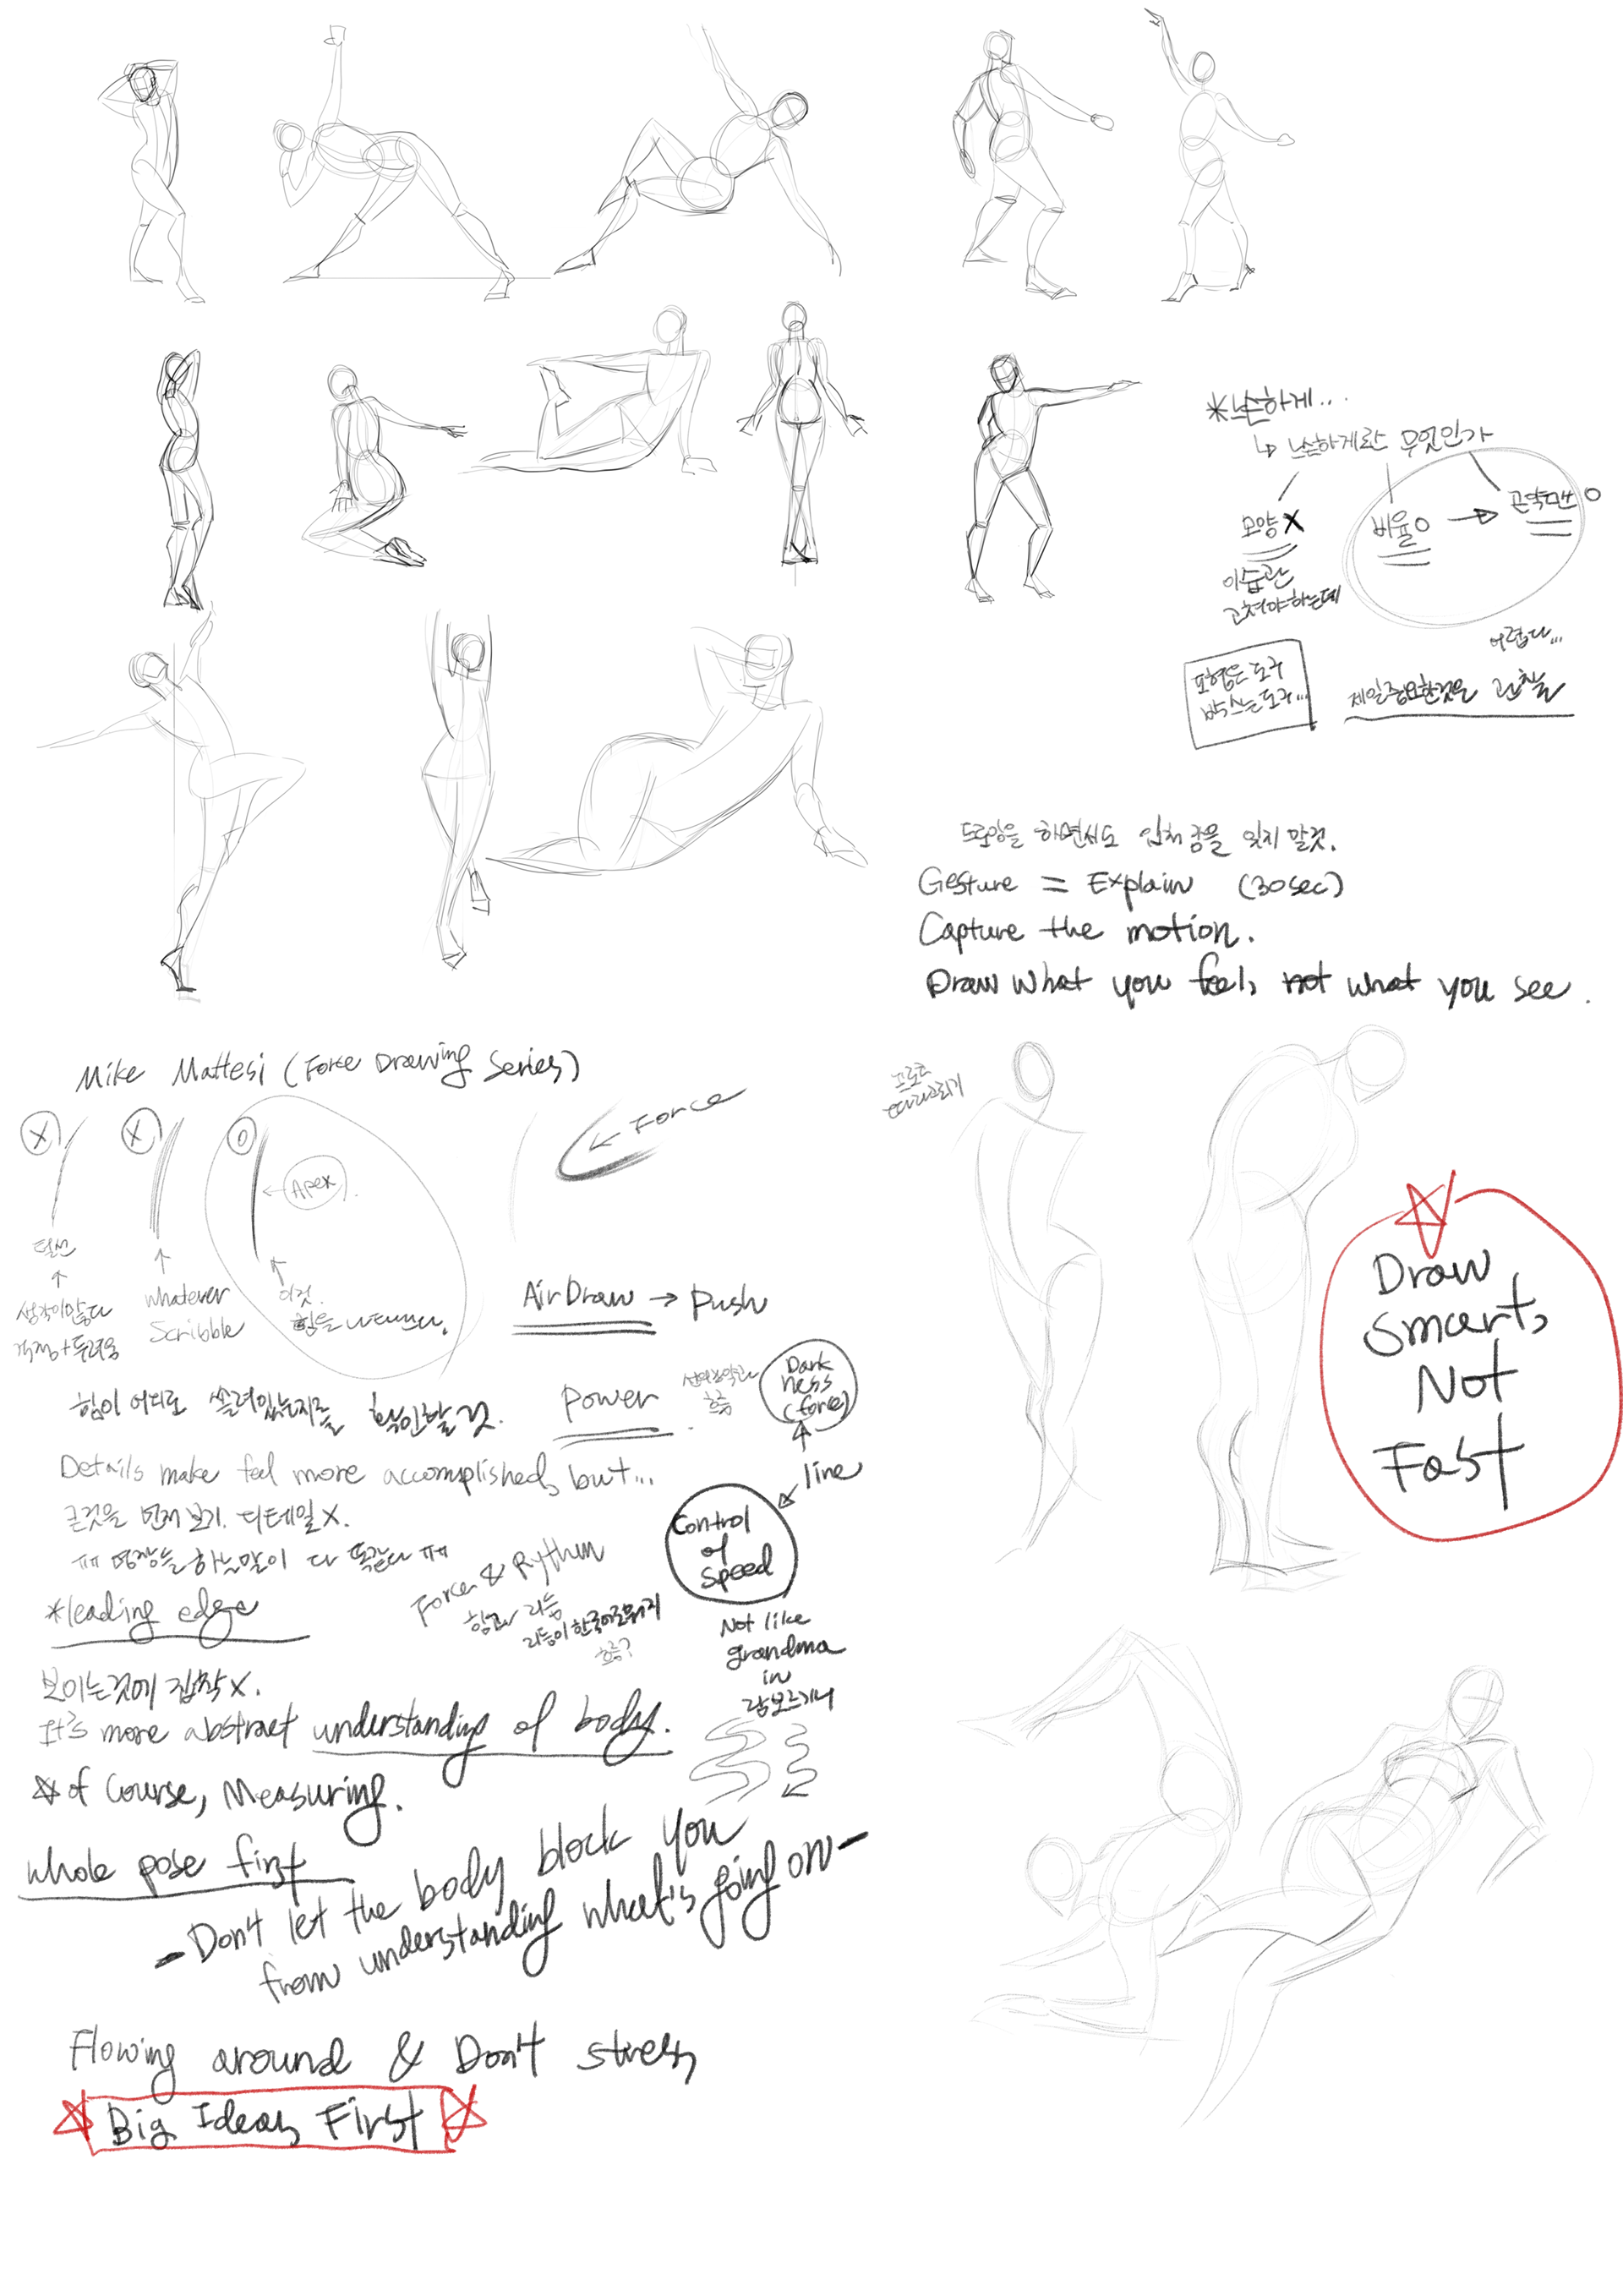 *느슨하게...
↳ 느슨하게란 무엇인가
모양 X
비율 O → 곤약맨 O
이 습관
고쳐야하는데
어렵다...
도형은 도구
박스는 도구...
제일 중요한것은 관찰
드로잉을 하면서도 입체감을 잊지 말것.
Gesture = Explain (30sec)
Capture the motion.
Draw what you feel, not what you see.
Mike Mattesi (Force Drawing Series)
X
X
O
← Apex
← Force
털선
↑
생각이 많다
걱정+두려움
↑
whatever
Scribble
이것.
힘을 나타낸다.
Air Draw → push
힘이 어디로 쏠려있는지를 확인할 것.
Power
흐름
Dark
ness
(force)
↑
line
Control
of
speed
Details make feel more accomplished, but...
큰것을 먼저 보기. 디테일 X.
ㅠㅠ 명장들 하는말이 다 똑같다 ㅠㅠ
*leading edge
Force & Rythm
힘과 리듬
리듬이 한국어로 뭐지
흐름?
Not like
grandma
in
람보르기니
보이는것에 집착 X.
It's more abstract understanding of body.
☆ of course, Measuring.
whole pose first
- Don't let the body block you
from understanding what's going on -
Flowing around & Don't stress
☆ Big Ideas First ☆
프로크
따라그리기
☆
Draw
smart,
Not
Fast